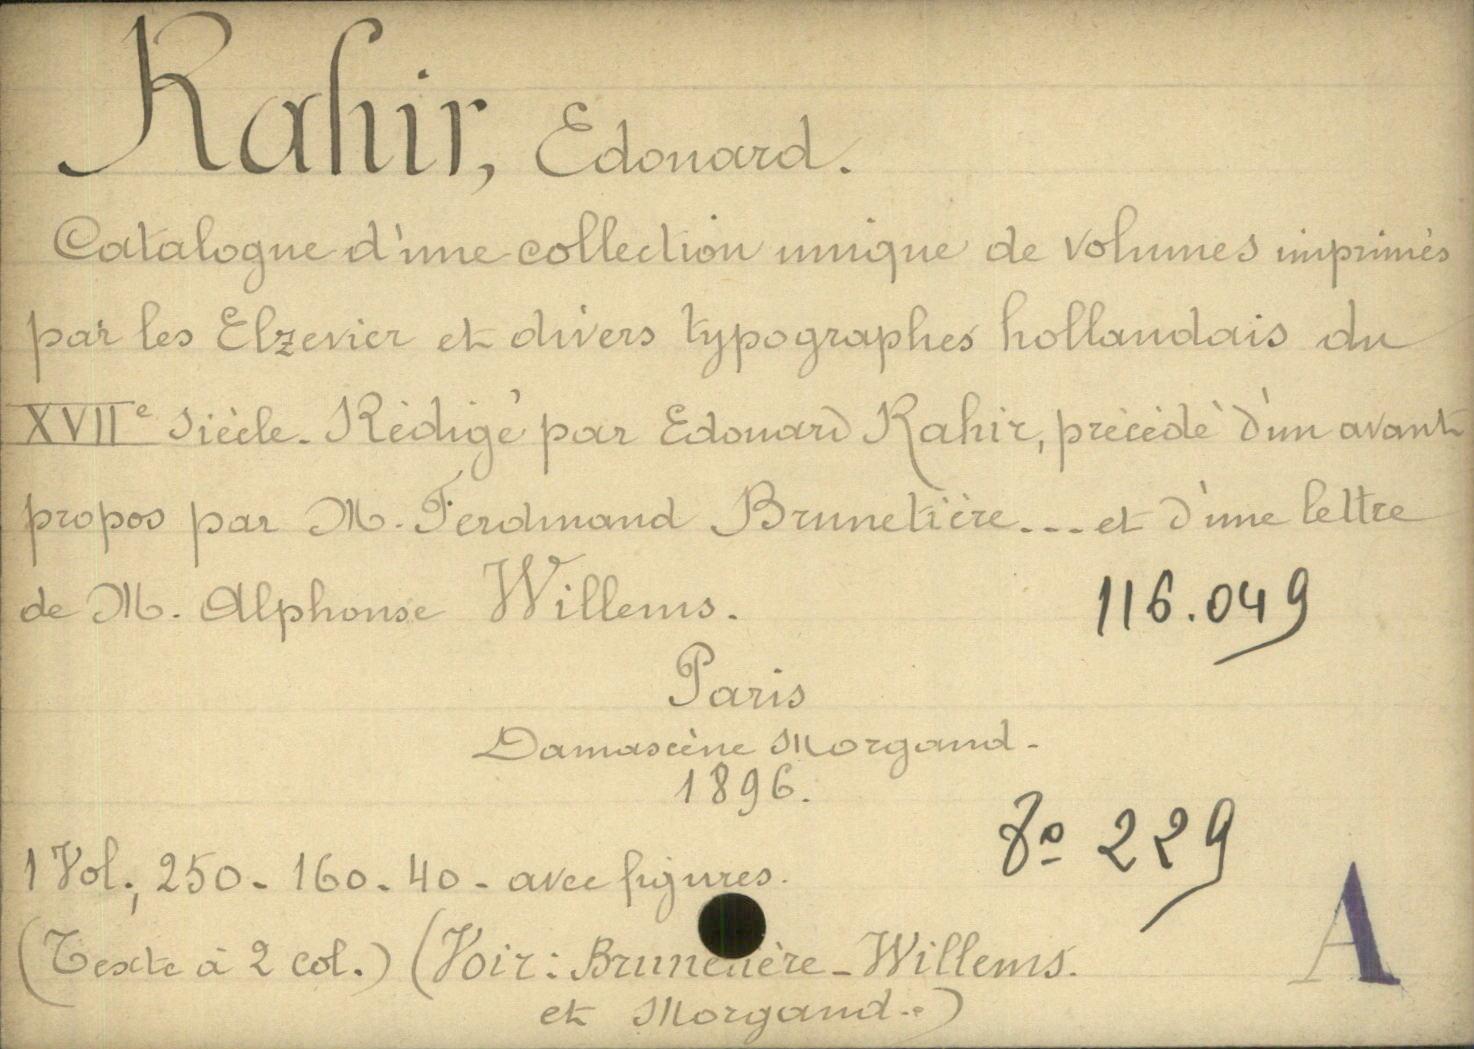 Rahir, Edouard.
Catalogue d'une collection unique de volumes imprimés
par les Elzevier et divers typographes hollandais du
XVIIe siècle. Rédigé par Edouard Rahir, précédé d'un avant
propos par M. Ferdinand Brunetière... et d'une lettre
de M. Alphonse Willems.
116.049
Paris
Damascène Morgand.
1896.
8º 229
1 Vol., 250. 160. 40. avec figures.
(Texte à 2 col.) (Voir: Brunetière - Willems.
et Morgand..)
A